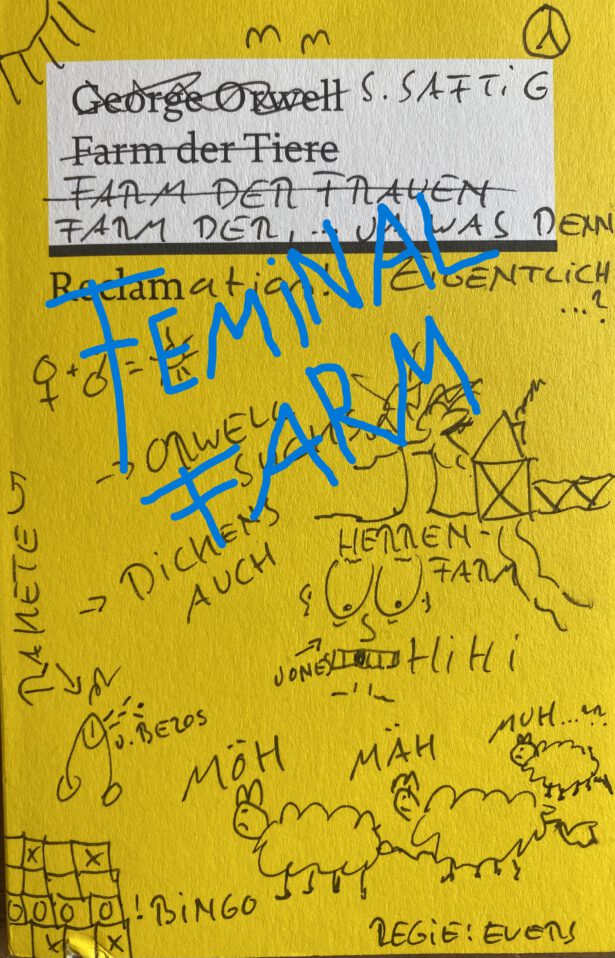 George Orwell S. SAFTiG
Farm der Tiere
FARM DER FRAUEN
FARM DER, ... JA WAS DENN
Reclamation! EIGENTLICH
...?
FEMINAL
FARM
♀ + ♂ =
→ ORWELL
SUCKS
→ DiCKENS
AUCH
HERREN-
FARM
RAKETE
JONES
HiHi
J. BEZOS
MÖH
MÄH
MUH...??
X X
O O O O ! BiNGO
X X
REGiE: EVERS